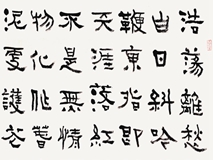 浩蕩離愁
白日斜吟
鞭東指即
天涯落紅
不是無情
物化作春
泥更護花